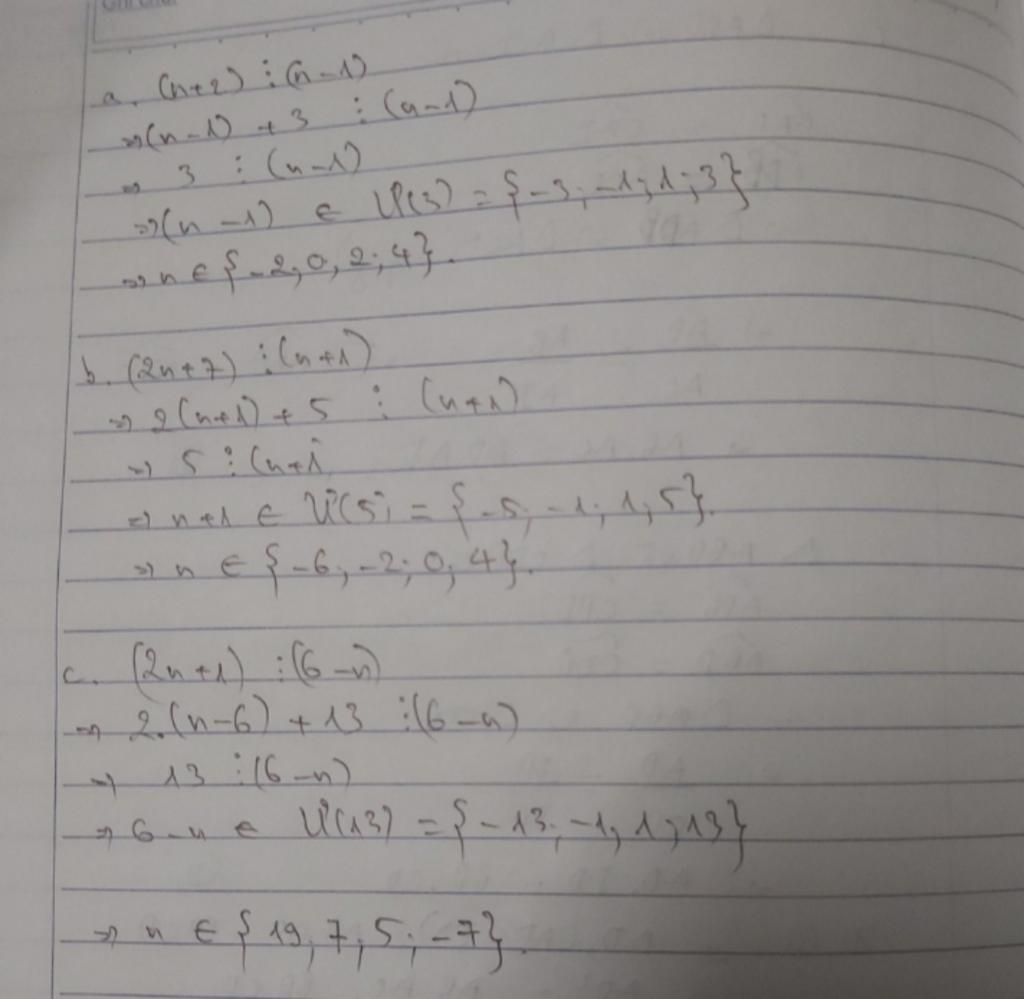 a. (n+2) ⋮ (n-1)
=> (n-1) + 3 ⋮ (n-1)
=> 3 ⋮ (n-1)
=> (n-1) ∈ Ư(3) = {-3; -1; 1; 3}
=> n ∈ {-2; 0; 2; 4}.
b. (2n+7) ⋮ (n+1)
=> 2(n+1) + 5 ⋮ (n+1)
=> 5 ⋮ (n+1
=> n+1 ∈ Ư(5) = {-5; -1; 1; 5}.
=> n ∈ {-6; -2; 0; 4}.
c. (2n+1) ⋮ (6-n)
=> 2.(n-6) + 13 ⋮ (6-n)
=> 13 ⋮ (6-n)
=> 6-n ∈ Ư(13) = {-13; -1; 1; 13}
=> n ∈ {19; 7; 5; -7}.